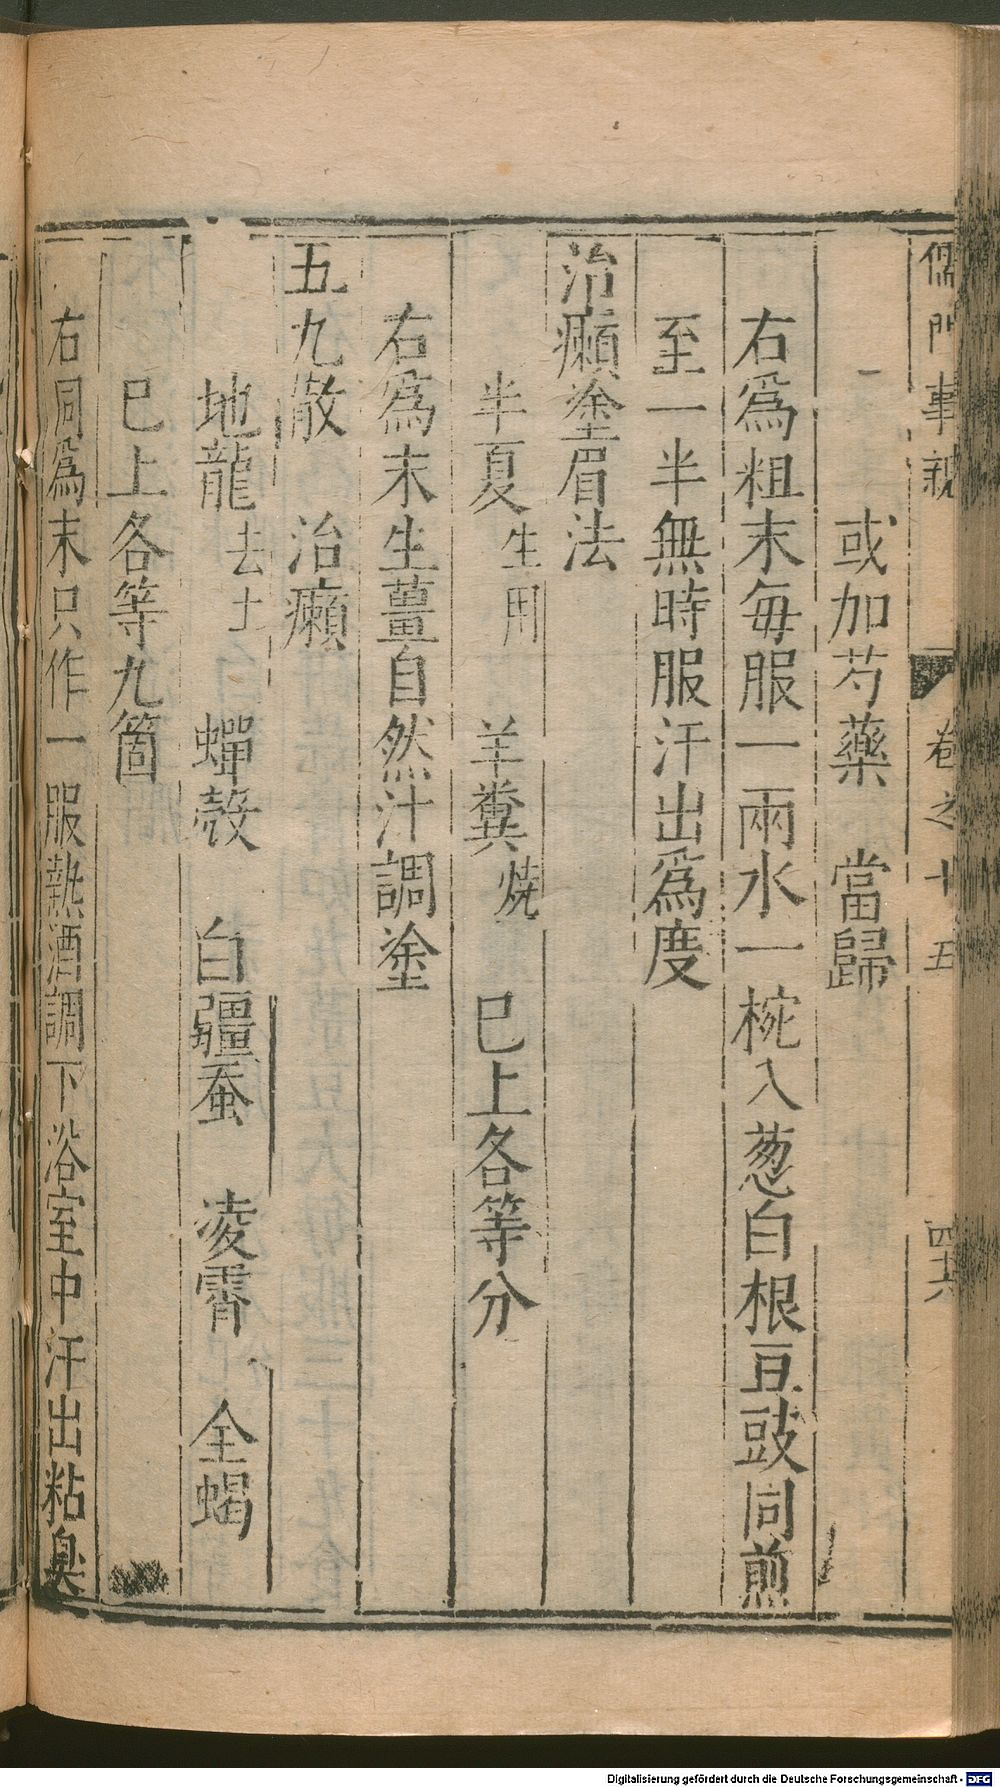 儒門事親 卷之十五 四十六
或加芍藥 當歸
右為粗末每服一兩水一椀入葱白根豆豉同煎
至一半無時服汗出為度
治癩塗眉法
半夏生用 羊糞燒 巳上各等分
右為末生薑自然汁調塗
五九散 治癩
地龍去土 蟬殼 白殭蚕 凌霄 全蝎
巳上各等九箇
右同為末只作一服熱酒調下浴室中汗出粘臭
Digitalisierung gefördert durch die Deutsche Forschungsgemeinschaft - DFG